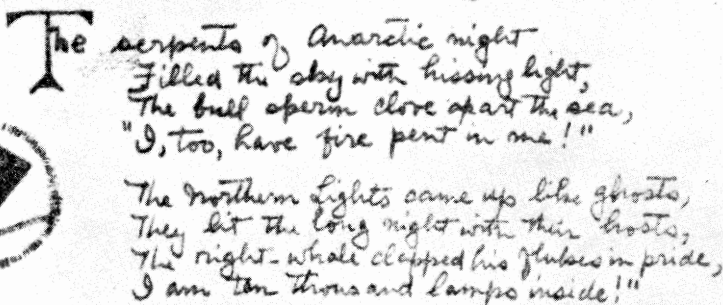 The serpents of Anarctic night
Filled the sky with hissing light,
The bull sperm clove apart the sea,
"I, too, have fire pent in me!"
The Northern Lights came up like ghosts,
They lit the long night with their hosts,
The right-whale clapped his flukes in pride,
I am ten thousand lamps inside!"